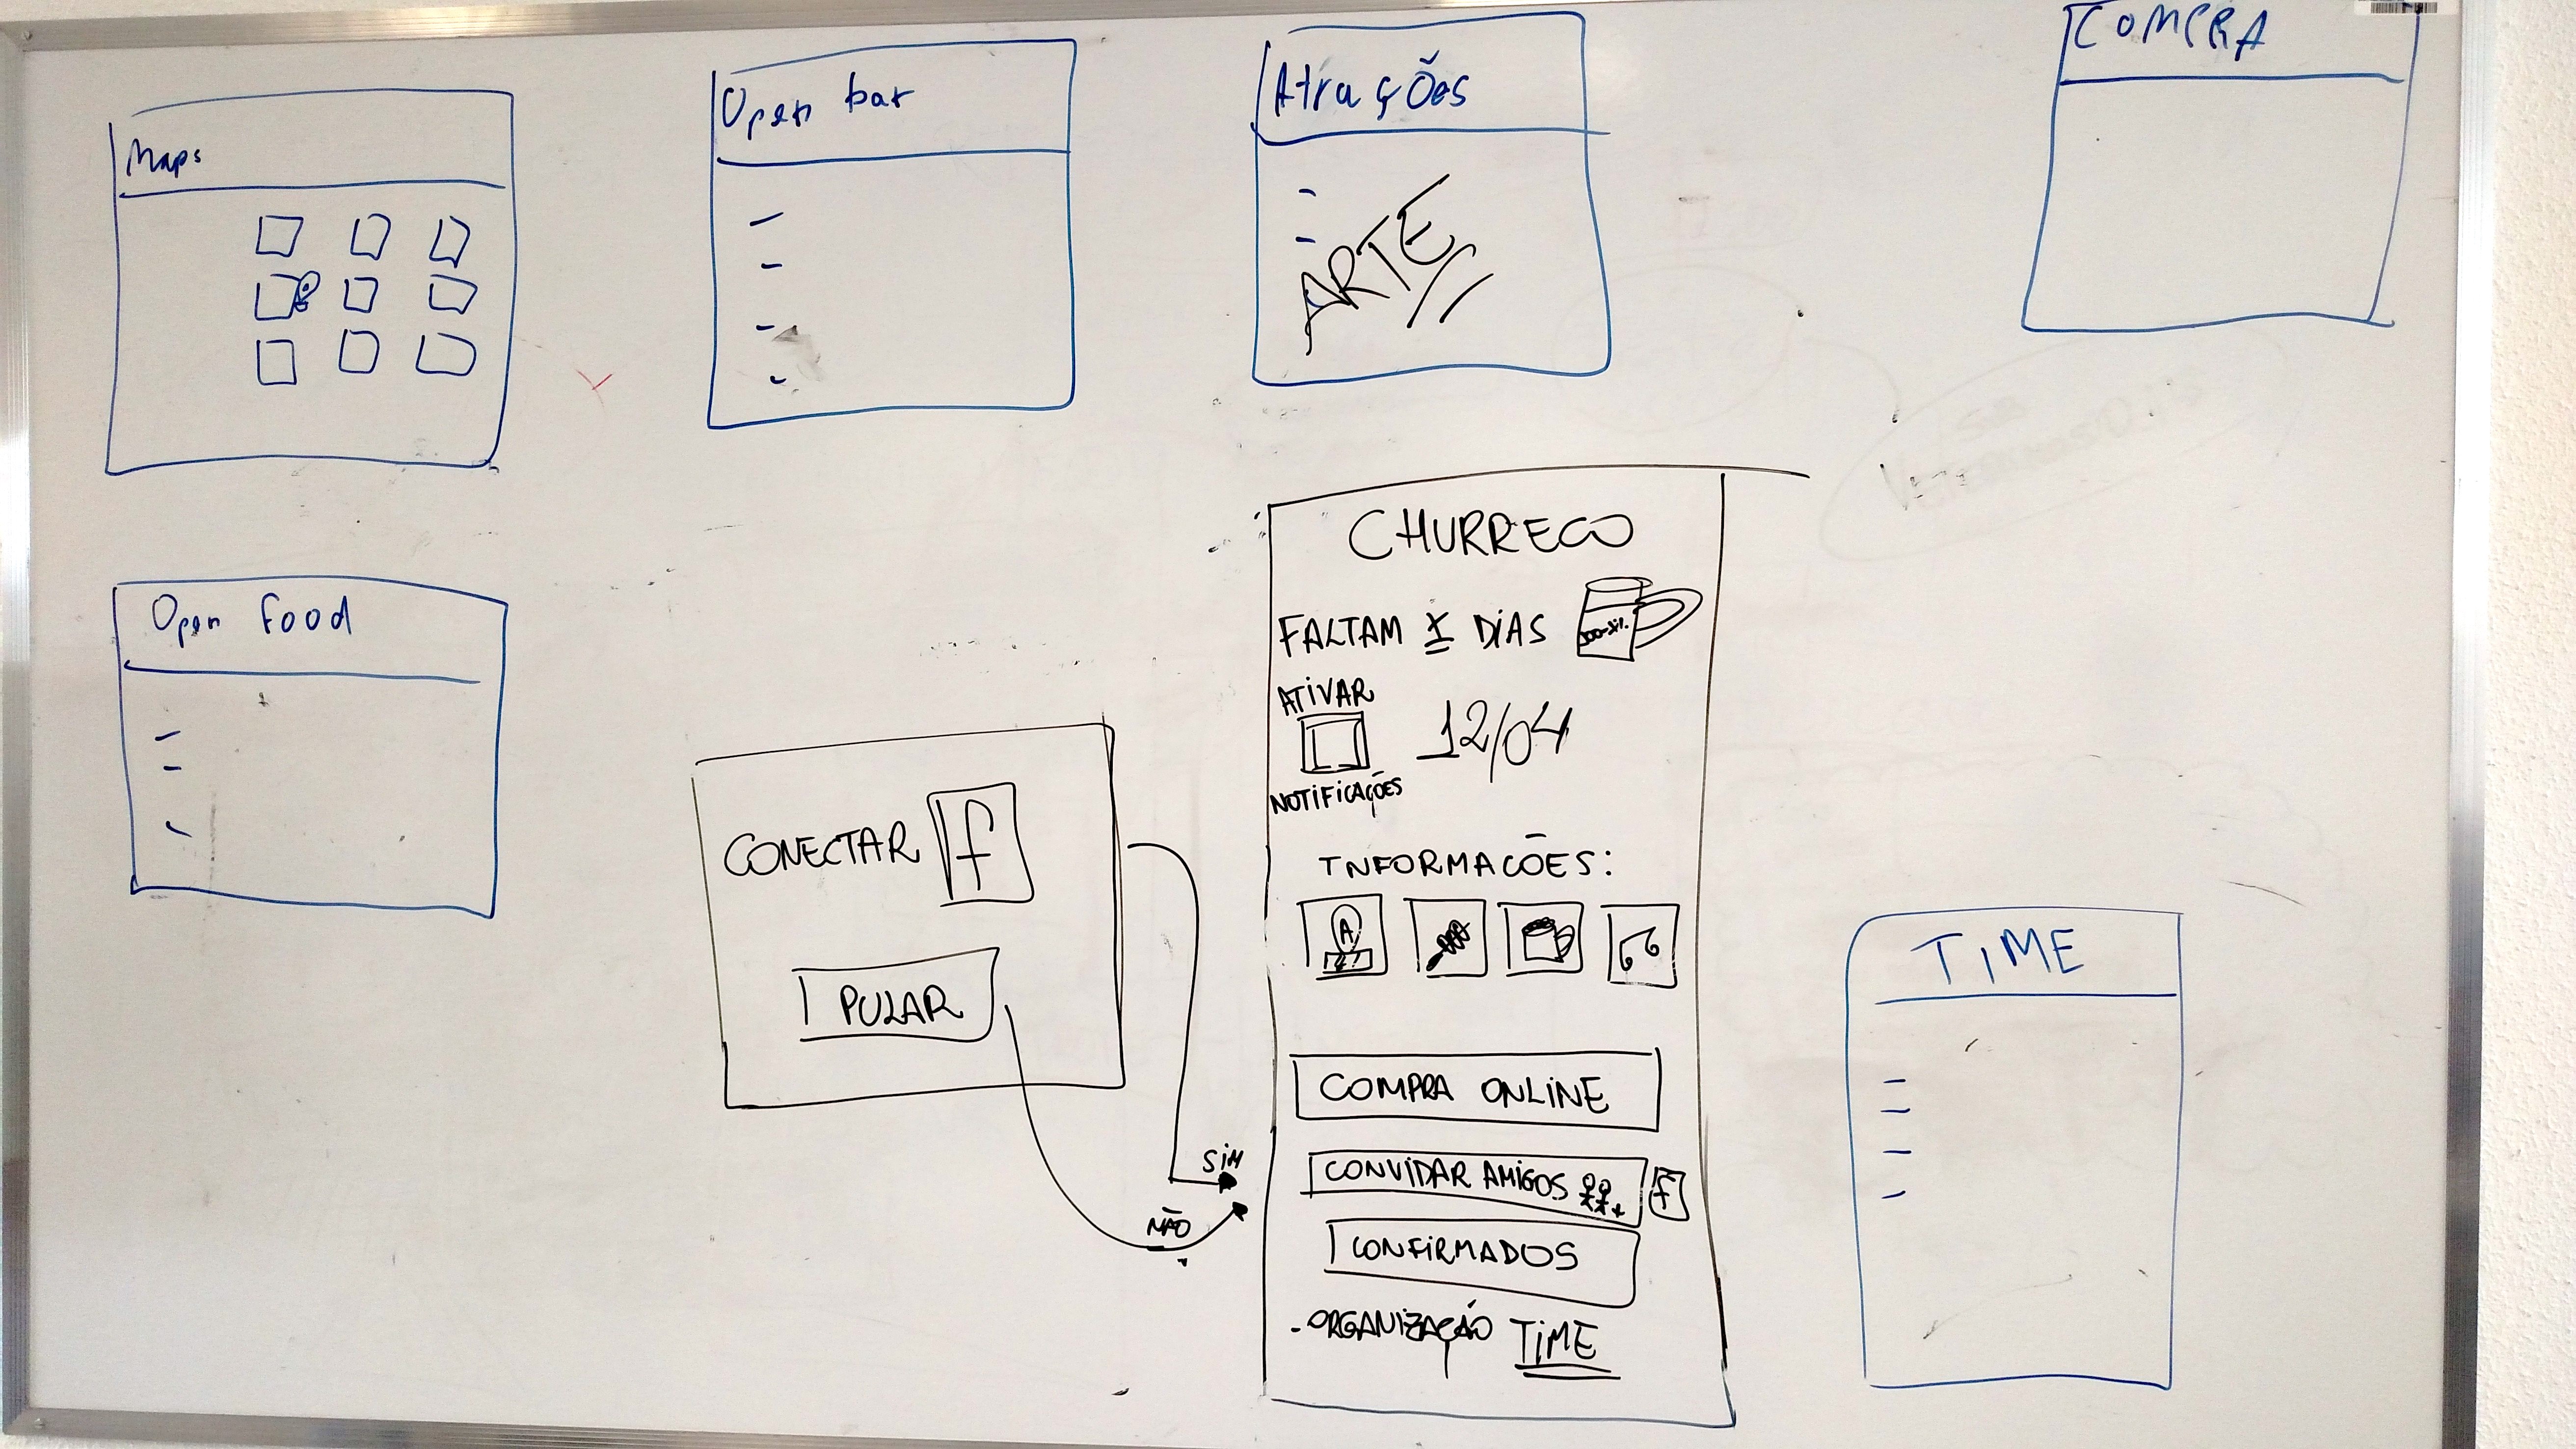 Maps
Open bar
Atrações
ARTE
COMPRA
Open food
CONECTAR f
PULAR
SIM
NÃO
CHURRECO
FALTAM X DIAS
ATIVAR
12/04
NOTIFICAÇÕES
INFORMACÕES:
A
COMPRA ONLINE
CONVIDAR AMIGOS f
CONFIRMADOS
-ORGANIZAÇÃO TIME
TIME